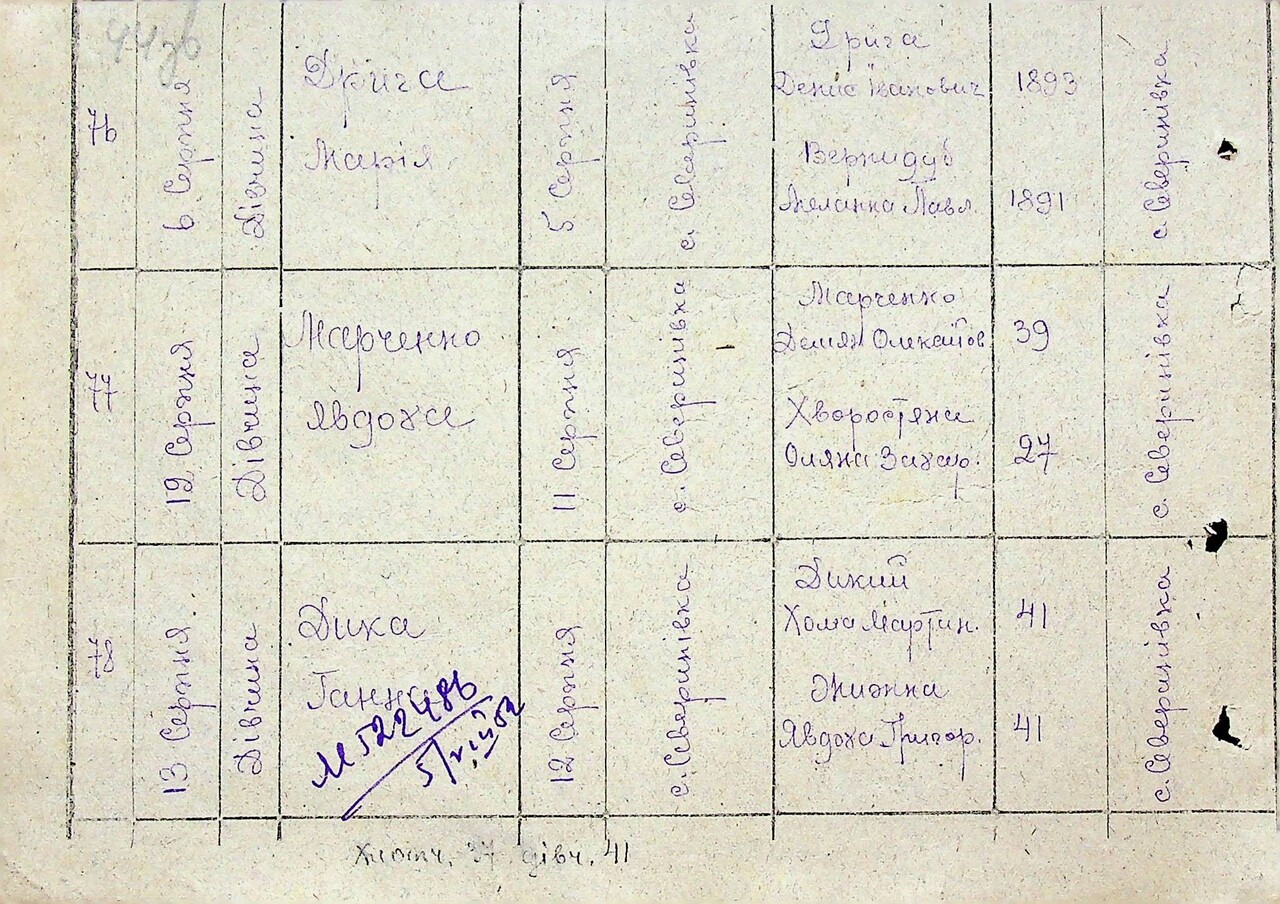 76
6 Серпня
Дівчина
Дрига
Марія
5 Серпня
с. Северинівка
Дрига
Денис Іванович
1893
Вернидуб
Меланка Павл.
1891
с. Северинівка
77
12 Серпня
Дівчина
Марченко
Явдоха
11 Серпня
с. Северинівка
Марченко
Демян
39
Хворостяна
Оляна Захар.
27
с. Северинівка
78
13 Серпня
Дівчина
Дика
Ганна
12 Серпня
с. Северинівка
Дикий
Хома Мартин.
41
Явдоха Григор.
41
с. Северинівка
Хлопч. 37 дівч. 41